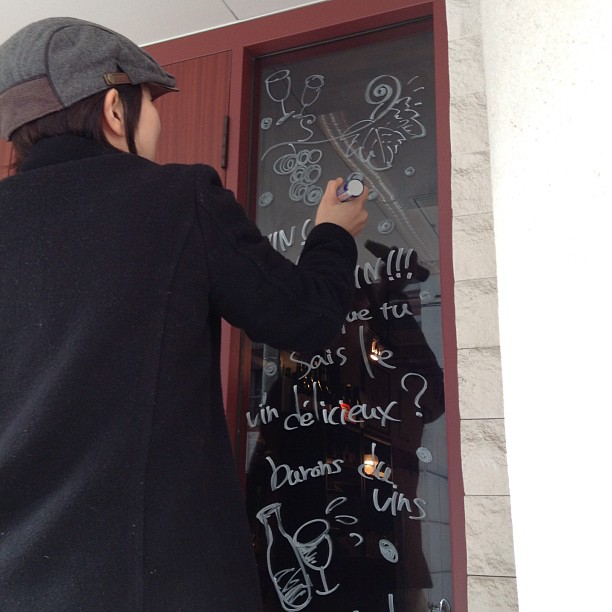 VIN!
VIN!!!
que tu
sais le
vin délicieux?
buvons du
vins